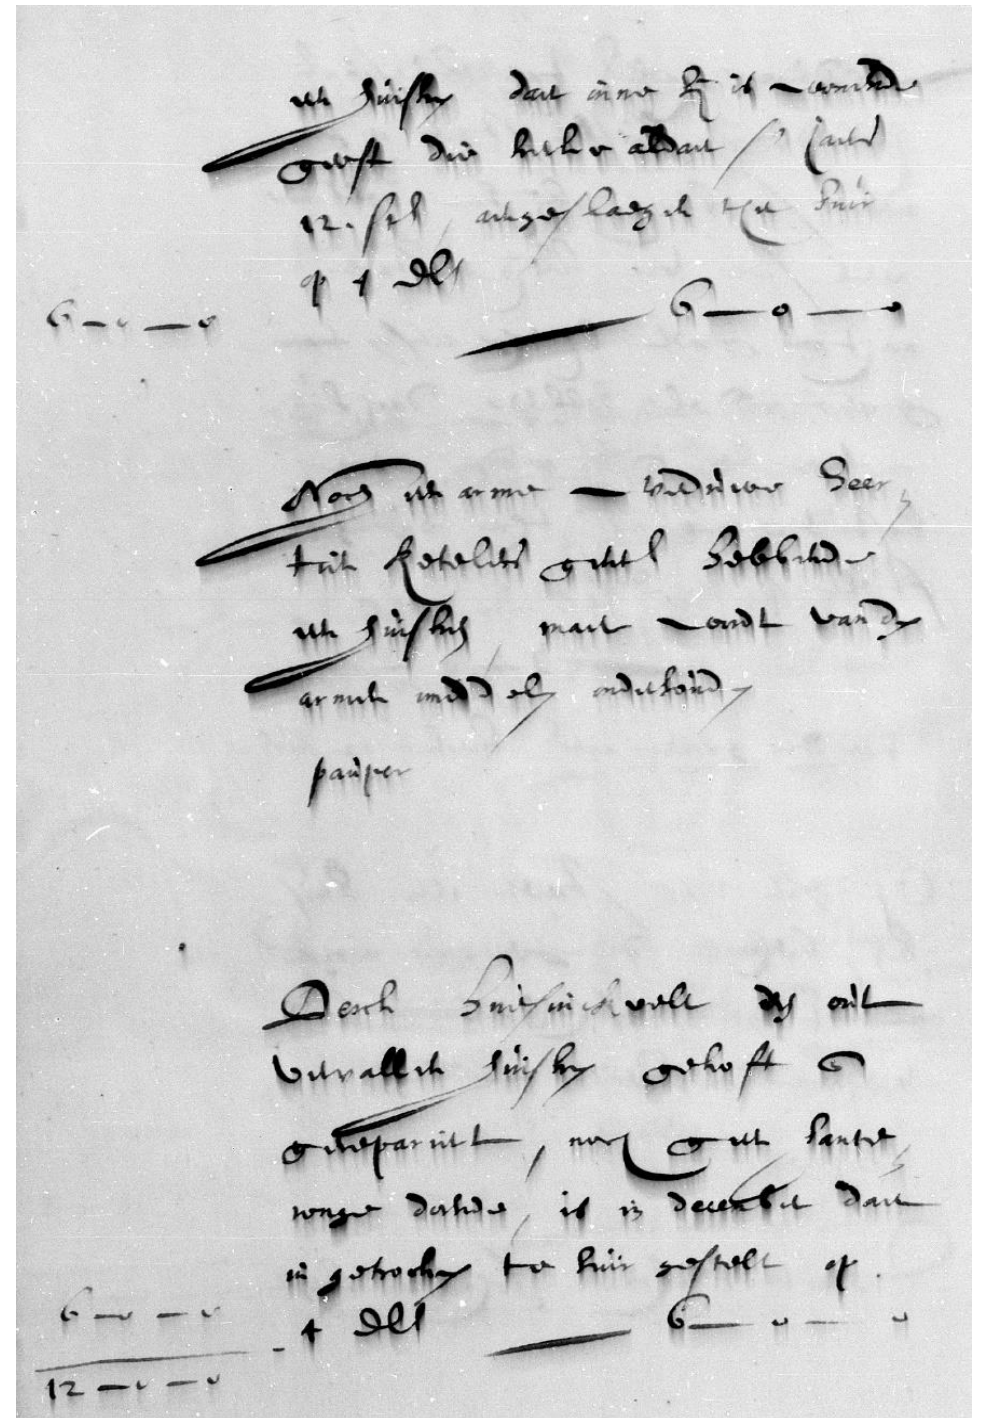 een huisken daer inne hij is woonende
geeft die kercke aldaer s' jaers
12 st, aengeslaegen ter huir
op 4 dlr
6-0-0 6-0-0
Noch een arme weduwe Geer
truit Ketelers genant hebbende
een huisken, maer wordt vanden
armen middelen onderhouden
pauper
Derck huisinckvelt een out
vervallen huisken gekoft &
gerepariert, noch geen hante
ringe doende, is in december daer
in getrocken te huir gestelt op
6-0-0 4 dlr 6-0-0
12-0-0